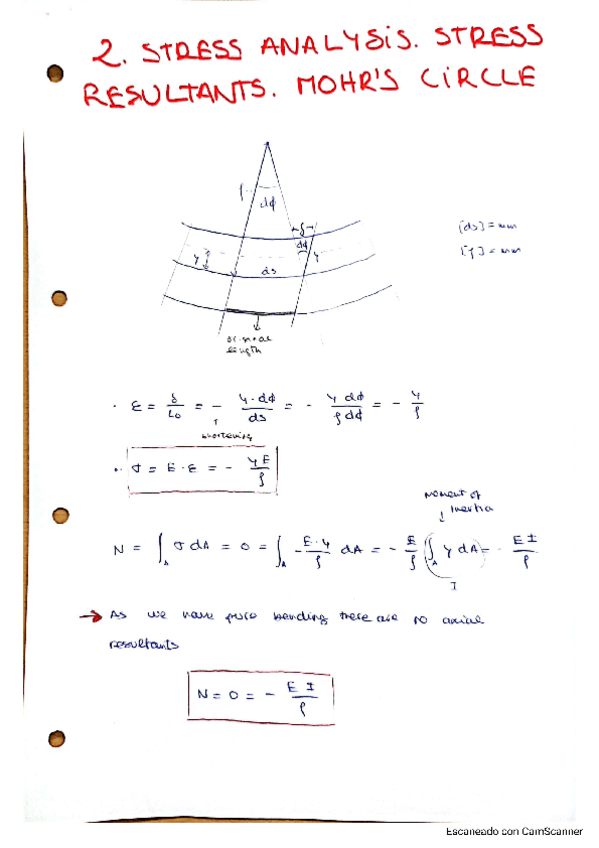 2. STRESS ANALYSIS. STRESS
RESULTANTS. MOHR'S CIRCLE
ρ
dϕ
δ
dϕ
y
y
ds
[ds] = mm
[y] = mm
length
· ε = δ/L₀ = - y·dϕ/ds = - y dϕ/ρ dϕ = - y/ρ
shortening
· σ = E·ε = - yE/ρ
moment of
inertia
N = ∫_A σ dA = 0 = ∫_A - E·y/ρ dA = - E/ρ ∫_A y dA = - EI/ρ
I
→ As we have pure bending there are no axial
resultants
N = 0 = - EI/ρ
Escaneado con CamScanner